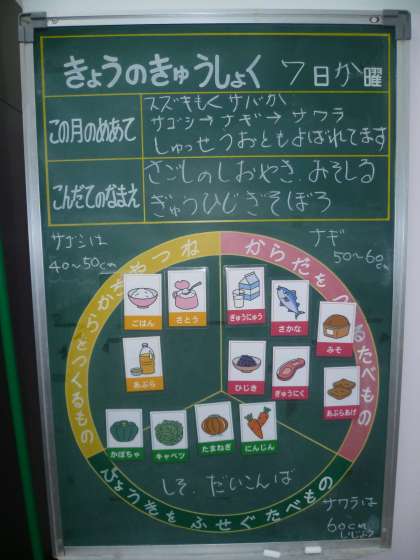 きょうのきゅうしょく 7日か曜
この月のめあて
スズキもく サバか
サゴシ→ナギ→サワラ
しゅっせうおともよばれてます
こんだてのなまえ
さごしのしおやき.みそしる
ぎゅうひじきそぼろ
サゴシは
40~50cm
ナギ
50~60cm
ねつやちからをつくるもの
からだをつくるたべもの
ごはん
さとう
ぎゅうにゅう
さかな
みそ
あぶら
ひじき
ぎゅうにく
あぶらあげ
かぼちゃ
キャベツ
たまねぎ
にんじん
しそ.だいこんば
びょうきをふせぐたべもの
サワラは
60cm
いじょう